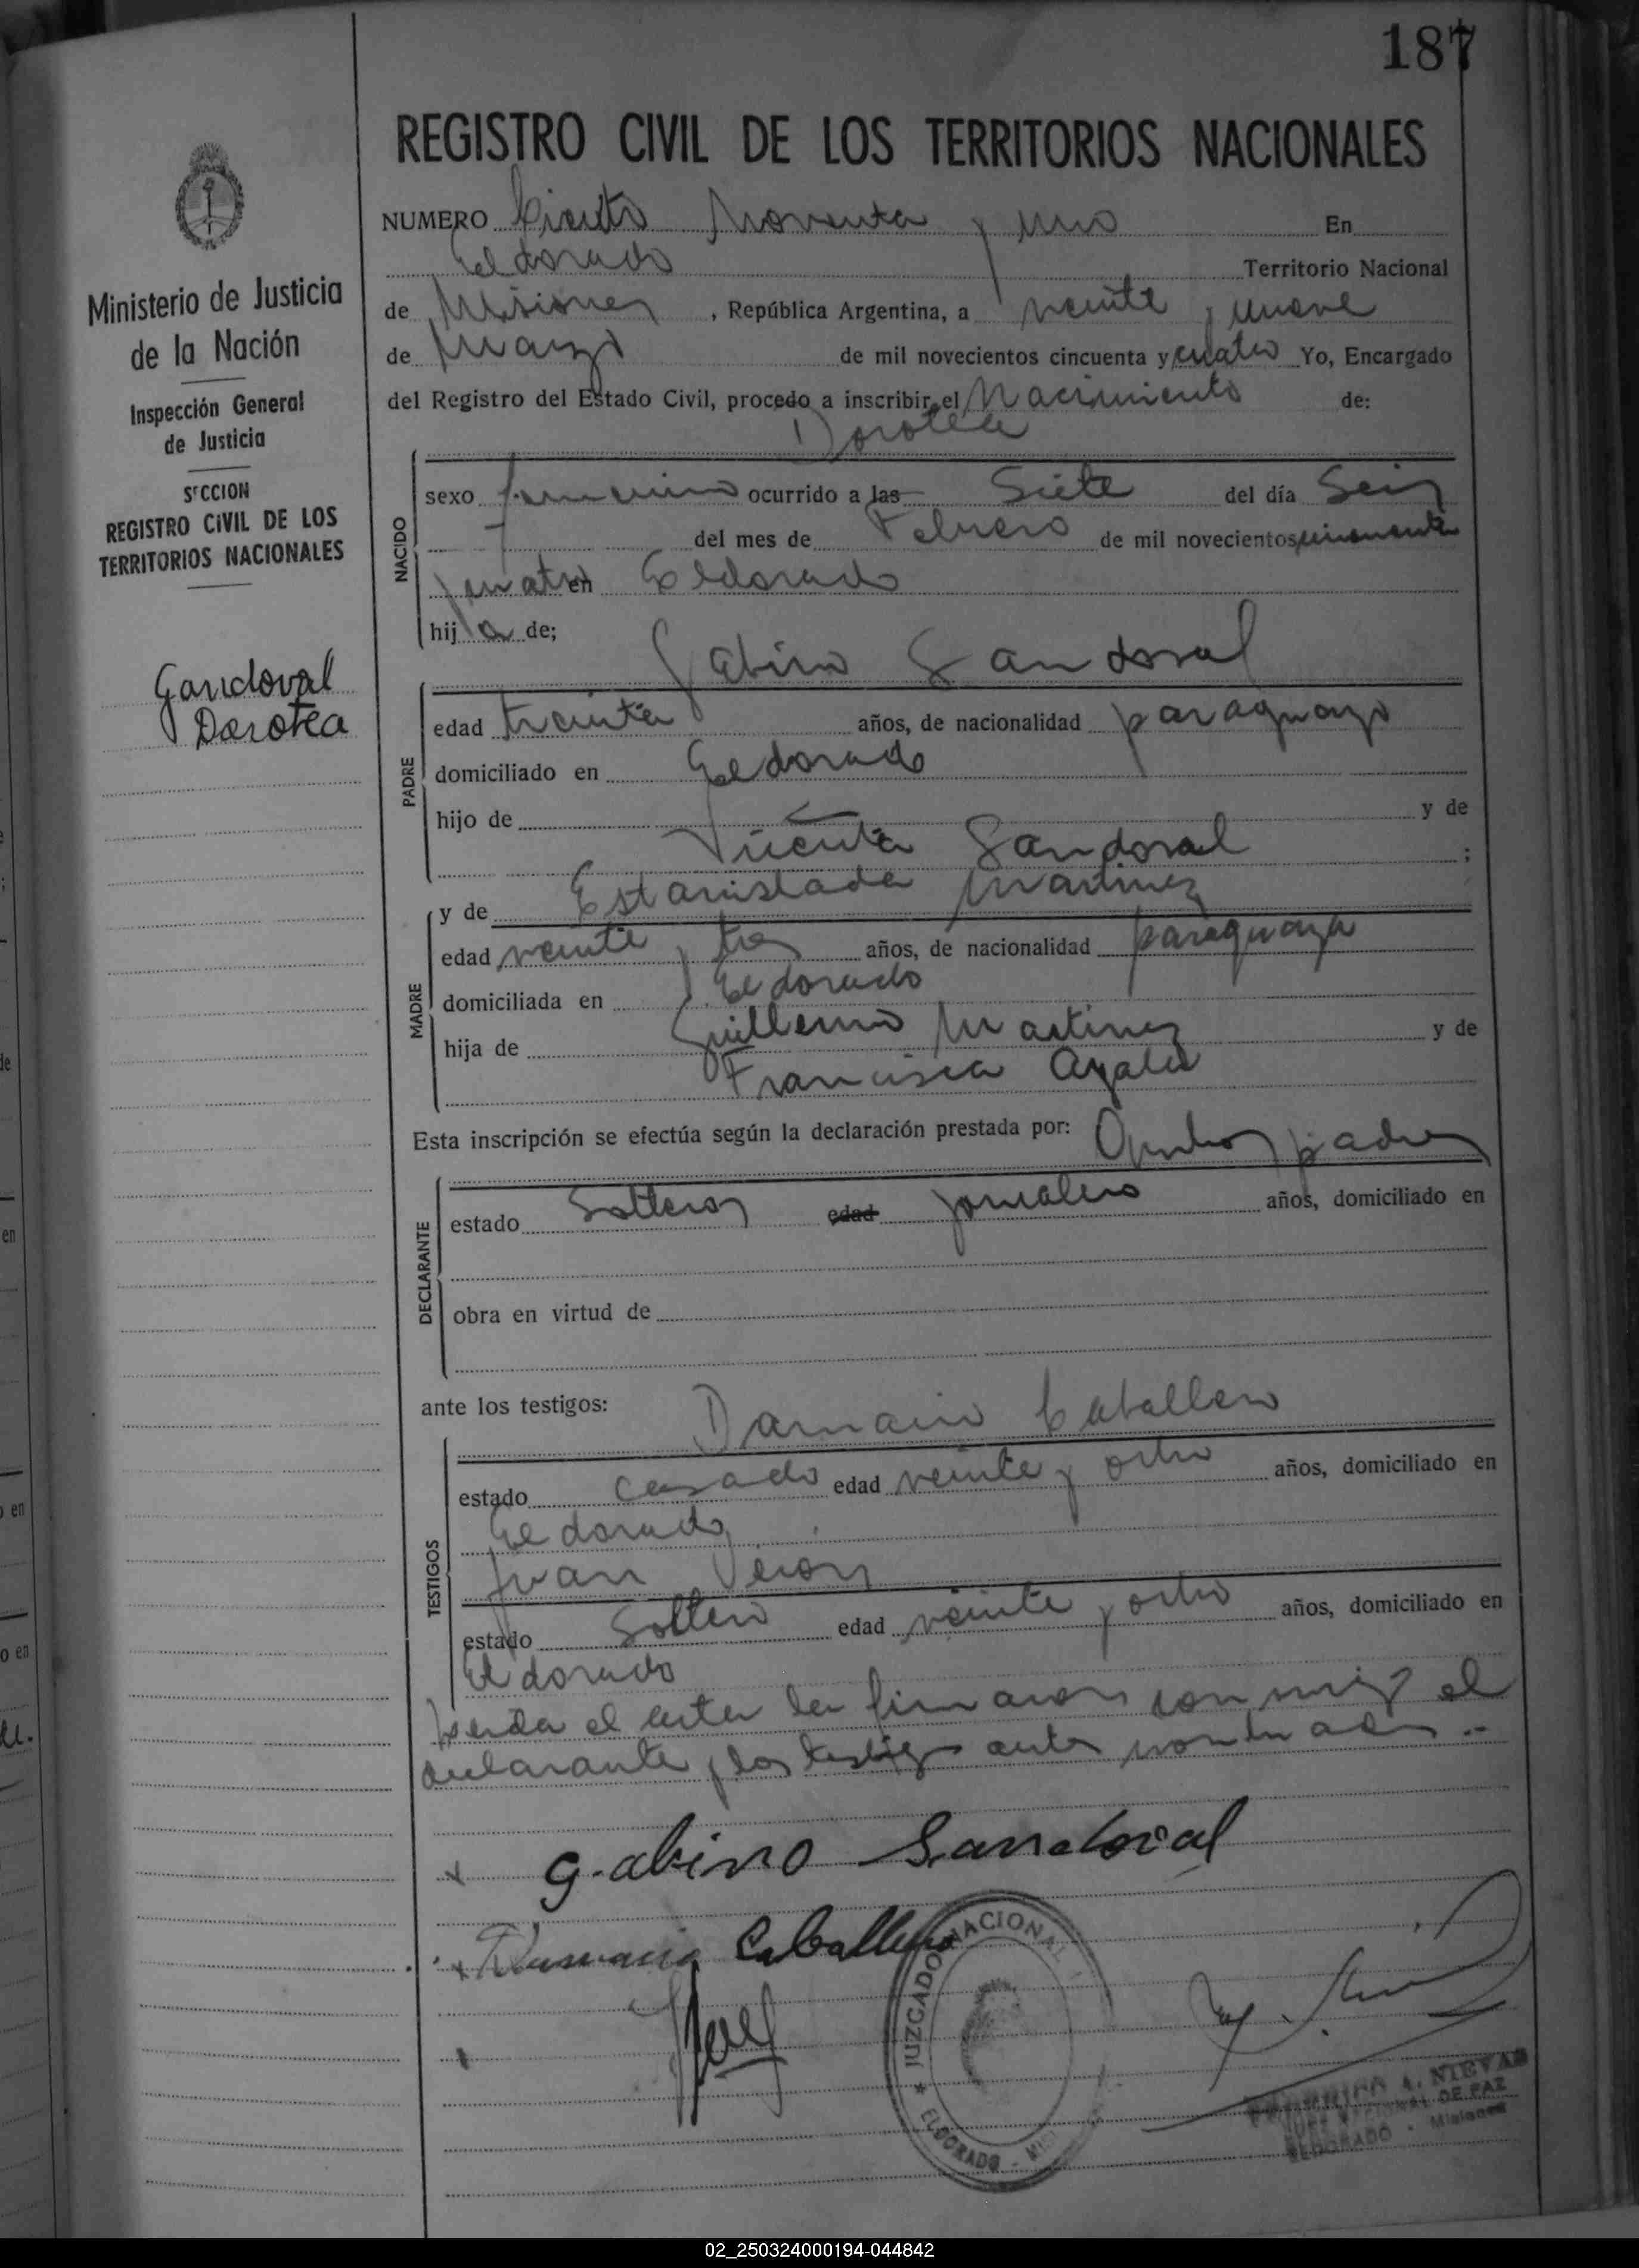 187
REGISTRO CIVIL DE LOS TERRITORIOS NACIONALES
Ministerio de Justicia
de la Nación
Inspección General
de Justicia
SECCION
REGISTRO CIVIL DE LOS
TERRITORIOS NACIONALES
Sandoval
Dorotea
NUMERO Ciento Noventa y uno En
Eldorado Territorio Nacional
de Misiones, República Argentina, a veinte y nueve
de Marzo de mil novecientos cincuenta y cuatro Yo, Encargado
del Registro del Estado Civil, procedo a inscribir el Nacimiento de:
Dorotea
NACIDO
sexo femenino ocurrido a las siete del día Seis
del mes de Febrero de mil novecientos cincuenta
y cuatro en Eldorado
hija de;
Gabino Sandoval
PADRE
edad treinta años, de nacionalidad paraguayo
domiciliado en Eldorado
hijo de y de
Vicenta Sandoval ;
MADRE
y de Estanislada Martinez
edad veinte y tres años, de nacionalidad paraguaya
domiciliada en Eldorado
hija de Guillermo Martinez y de
Francisca Ayala
Esta inscripción se efectúa según la declaración prestada por: Ambos padres
DECLARANTE
estado Solteros edad jornalero años, domiciliado en
obra en virtud de
ante los testigos: Damacio Caballero
TESTIGOS
estado casado edad veinte y ocho años, domiciliado en
Eldorado
Juan Veron
estado Soltero edad veinte y ocho años, domiciliado en
Eldorado
el acta la firmaron conmigo el
declarante y los testigos antes nombrados.-
Gabino Sandoval
Caballero
JUZGADO NACIONAL
ELDORADO - MISI
A. NIEVAS
DE PAZ
ELDORADO - Misiones
02_250324000194-044842